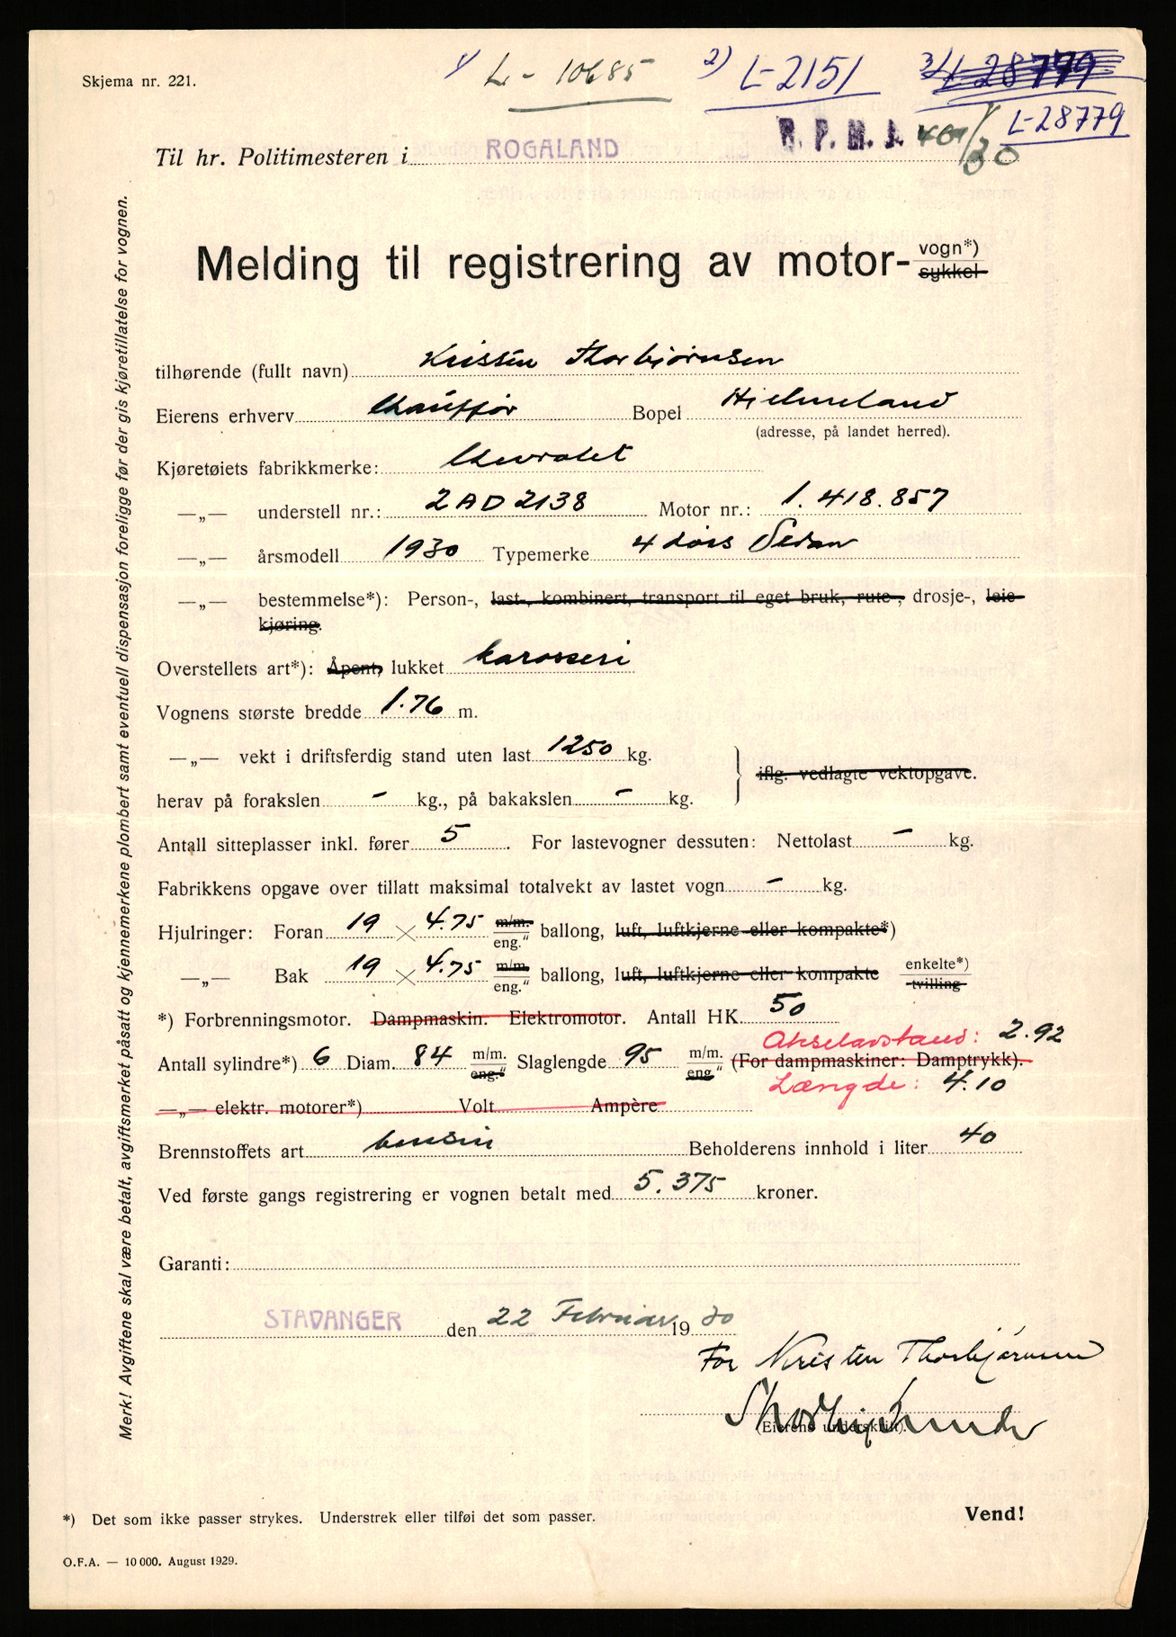 Skjema nr. 221.
1) L-10685 2) L-2151 3) L-28779
L-28779
Til hr. Politimesteren i ROGALAND R. P. M. J. 401/30
Melding til registrering av motor-vogn*)
sykkel
tilhørende (fullt navn) Kristen Thorbjørnsen
Eierens erhverv Chauffør Bopel Hjelmeland
(adresse, på landet herred).
Kjøretøiets fabrikkmerke: Chevrolet
—„— understell nr.: 2AD2138 Motor nr.: 1.418.857
—„— årsmodell 1930 Typemerke 4 dørs Sedan
—„— bestemmelse*): Person-, last-, kombinert, transport til eget bruk, rute-, drosje-, leie-
kjøring.
Overstellets art*): Åpent, lukket karosseri
Vognens største bredde 1.76 m.
—„— vekt i driftsferdig stand uten last 1250 kg.
iflg. vedlagte vektopgave.
herav på forakslen - kg., på bakakslen - kg.
Antall sitteplasser inkl. fører 5. For lastevogner dessuten: Nettolast - kg.
Fabrikkens opgave over tillatt maksimal totalvekt av lastet vogn - kg.
Hjulringer: Foran 19 × 4.75 m/m. eng." ballong, luft, luftkjerne eller kompakte*)
—„— Bak 19 × 4.75 m/m. eng." ballong, luft, luftkjerne eller kompakte enkelte*) tvilling
*) Forbrenningsmotor. Dampmaskin. Elektromotor. Antall HK. 50
Akselavstand: 2.92
Antall sylindre*) 6 Diam. 84 m/m. eng." Slaglengde 95 m/m. eng." (For dampmaskiner: Damptrykk).
Længde: 4.10
—„— elektr. motorer*) Volt Ampère
Brennstoffets art bensin Beholderens innhold i liter 40
Ved første gangs registrering er vognen betalt med 5.375 kroner.
Garanti:
STAVANGER den 22 Februar 1930
For Kristen Thorbjørnsen
(Eierens underskrift).
*) Det som ikke passer strykes. Understrek eller tilføi det som passer.
Vend!
O.F.A. — 10 000. August 1929.
Merk! Avgiftene skal være betalt, avgiftsmerket påsatt og kjennemerkene plombert samt eventuell dispensasjon foreligge før der gis kjøretillatelse for vognen.